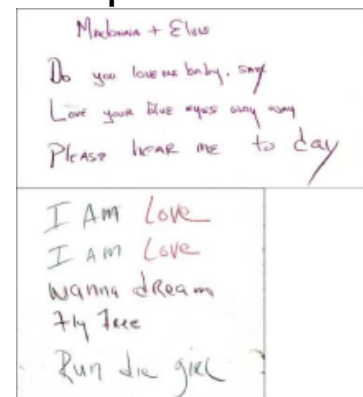 Madonna + Elvis
Do you love me baby. say
Love your blue eyes away away
Please hear me to day
I Am Love
I Am Love
wanna dream
Fly Free
Run die girl